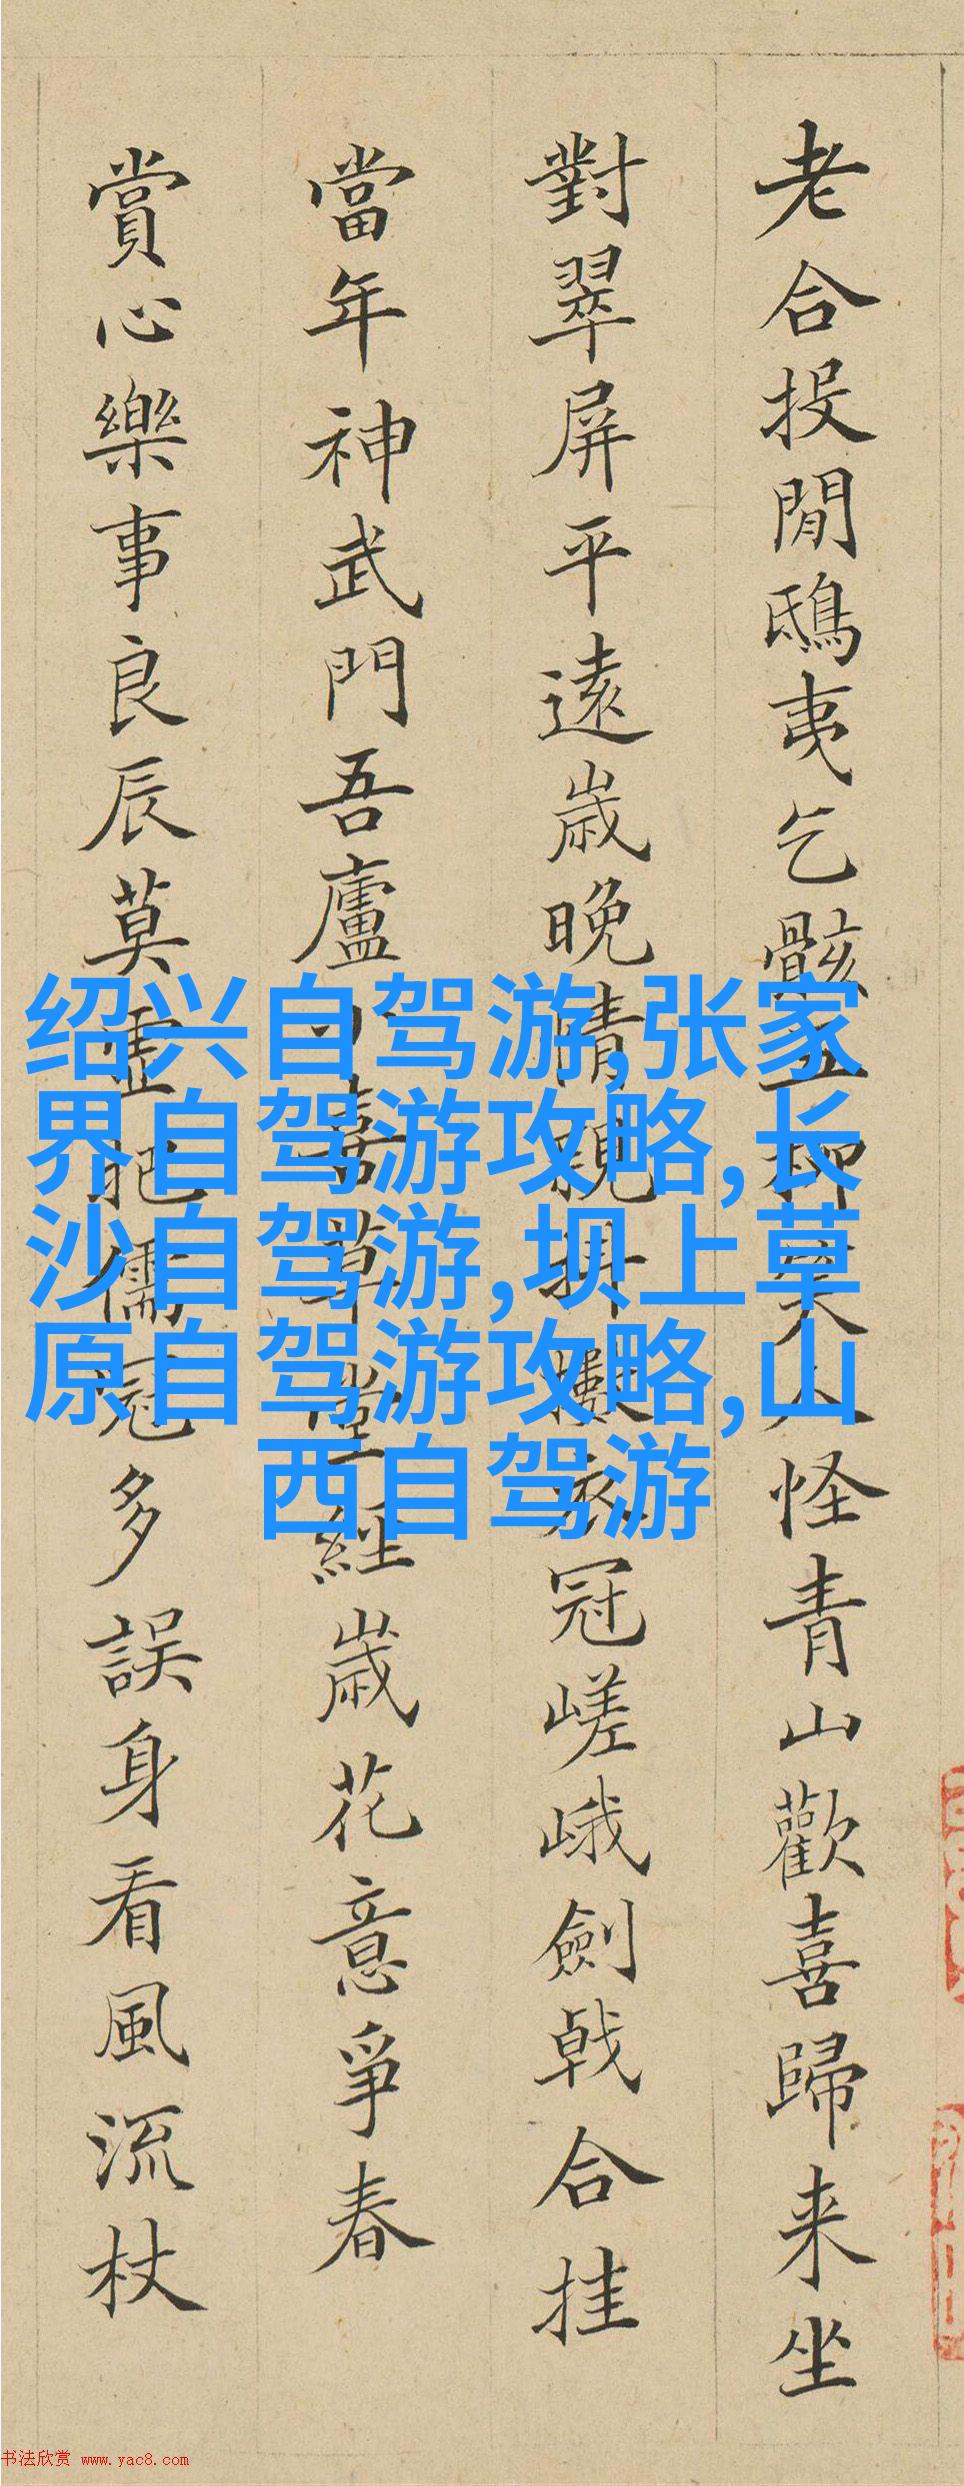 老合投閒鴟夷乞骸五柳笑人怪青山歡喜歸来坐
對翠屏平遠歲晚情親冠嵯峨劍戟合挂
當年神武門吾廬可喜草堂經歲花意爭春
賞心樂事良辰莫虛把儒冠多誤身看風流杖
绍兴自驾游,张家
界自驾游攻略,长
沙自驾游,坝上草
原自驾游攻略,山
西自驾游
书法欣赏 www.yac8.com